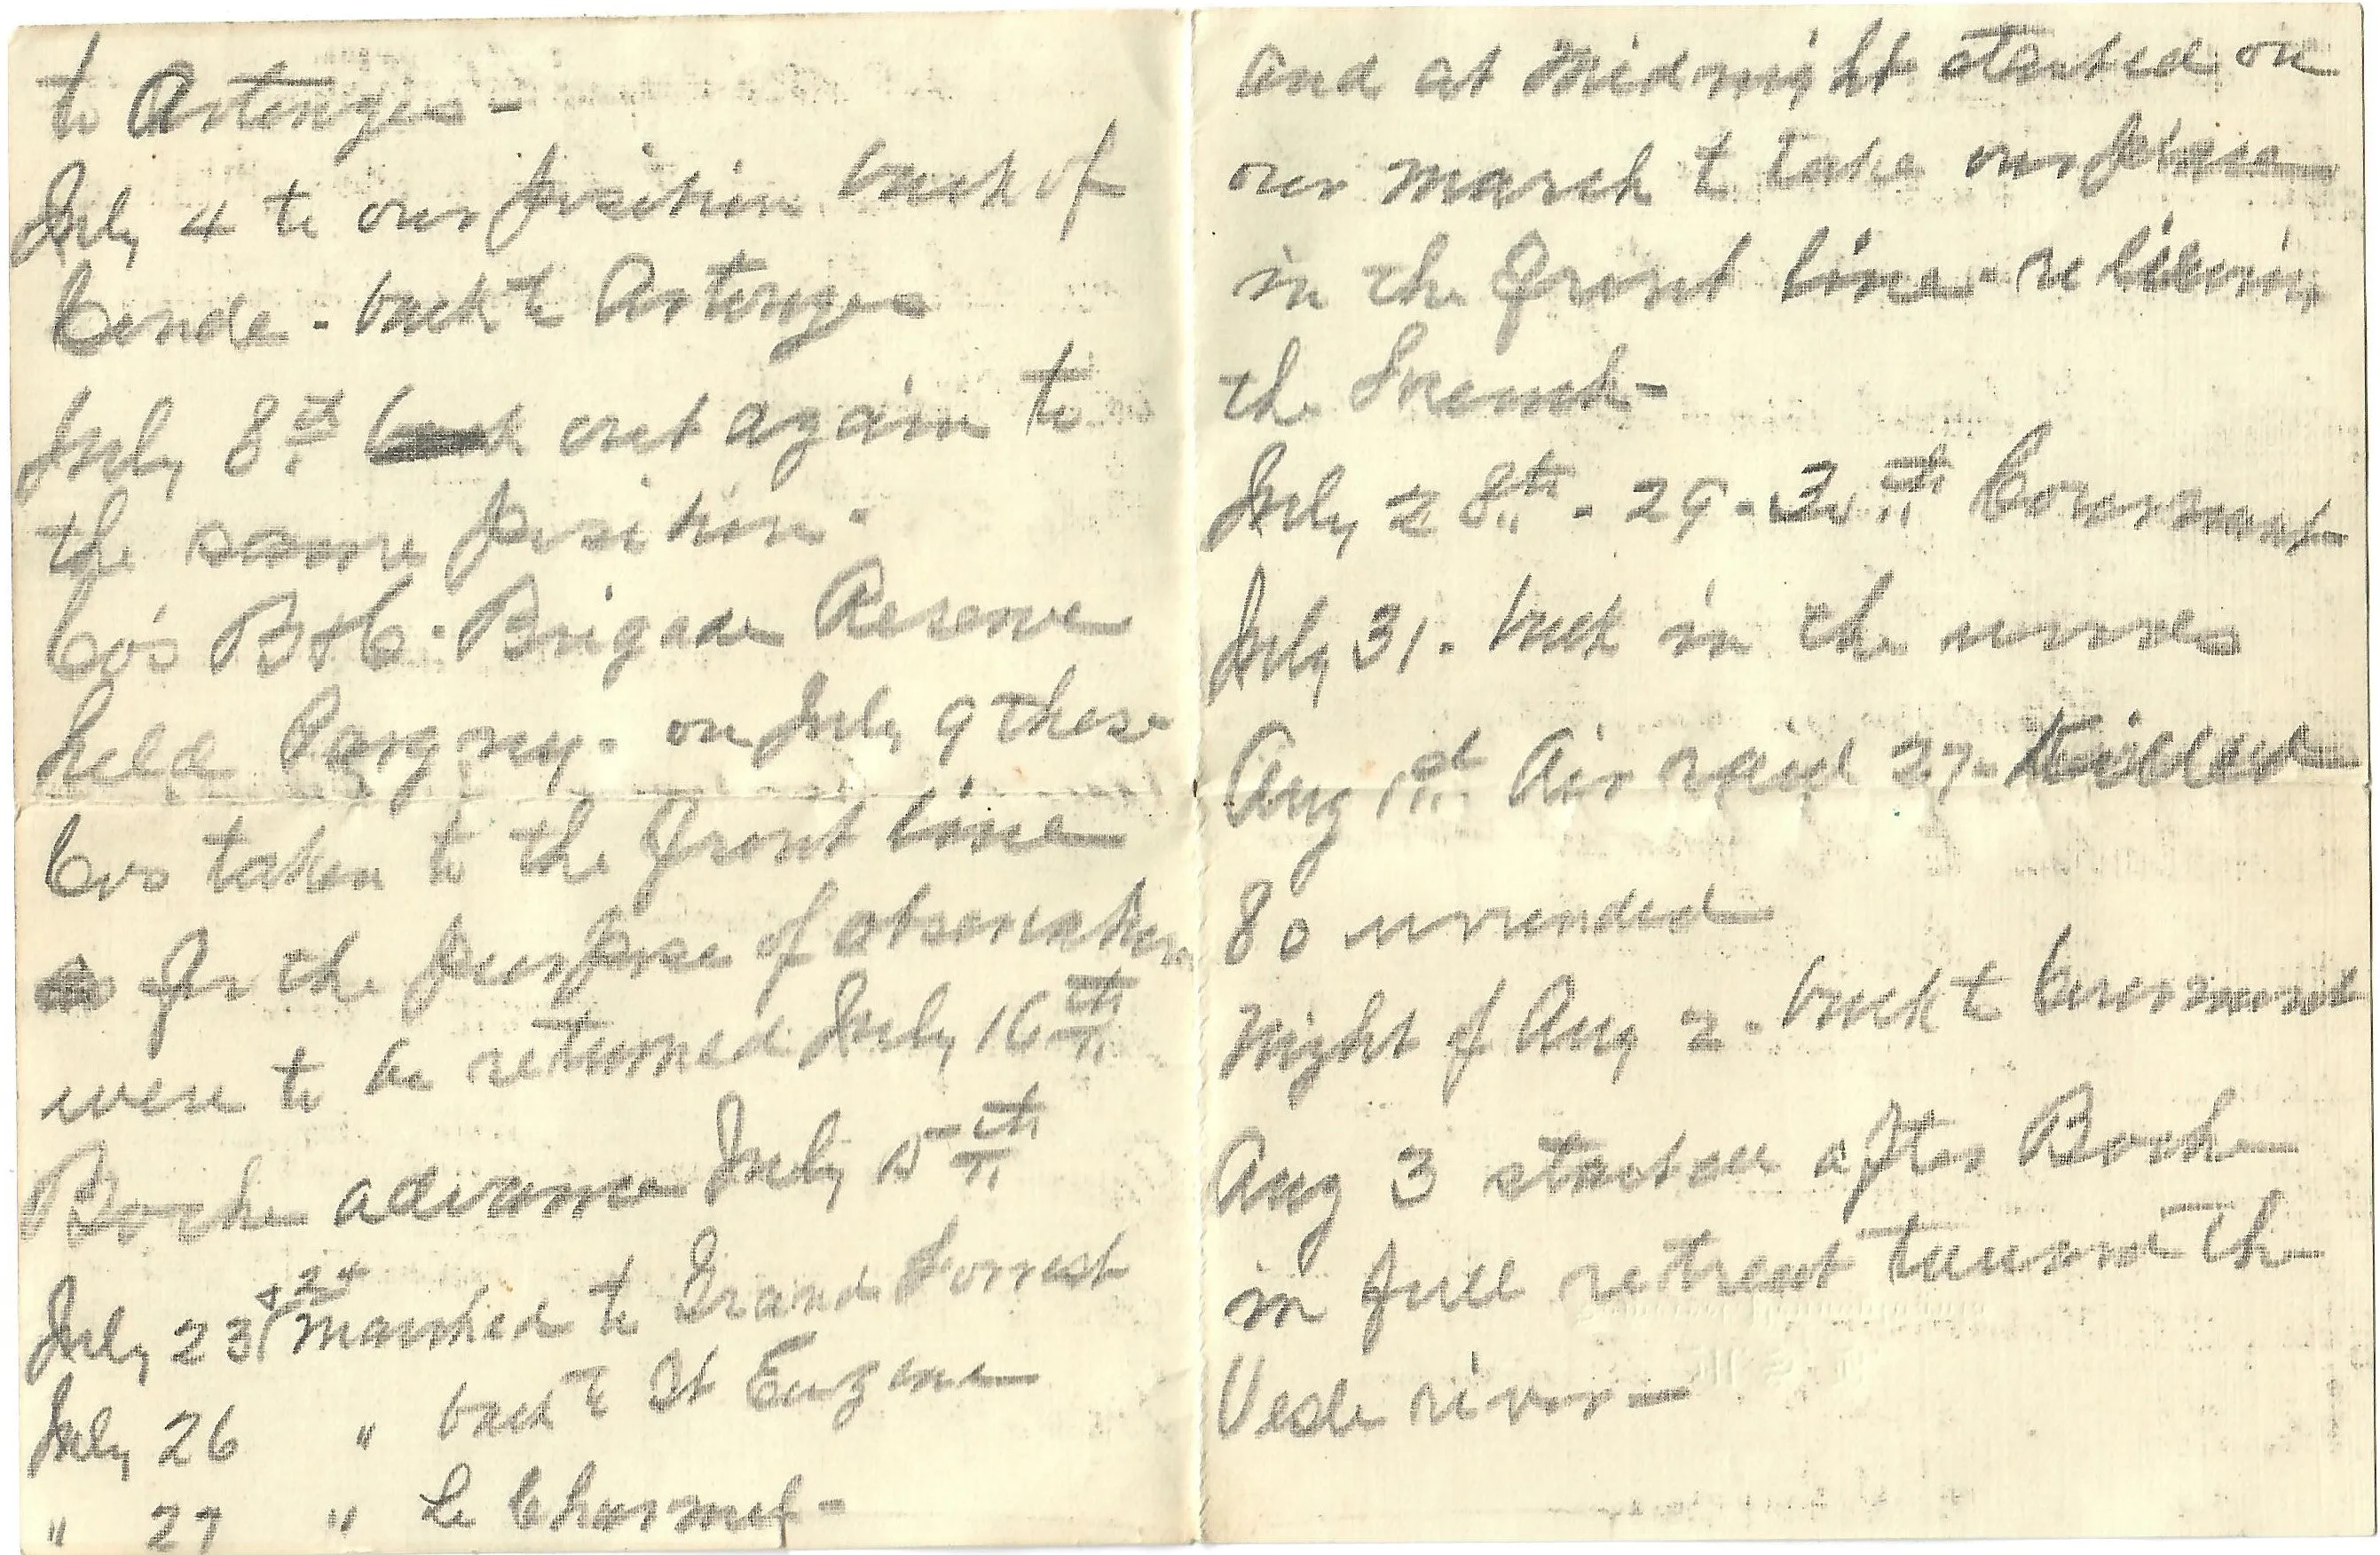 to Artonges -
July 4 to our position back of
Conde - back to Artonges
July 8th out again to
the same position -
Co's B & C - Brigade Reserve
held Pargny - on July 9 these
Cos taken to the front line
for the purpose of observation
were to be returned July 16th
Boche advance July 15th
July 23 & 24 marched to Grand Forrest
July 26 " back to St Eugene
" 27 " Le Charmel -
and at Midnight started on
our march to take our place
in the front line - relieving
the French -
July 28th - 29 - 30th Courmont
July 31 - back in the woods
Aug 1st Air raid 27 - killed
80 wounded
Night of Aug 2 - back to Courmont
Aug 3 started after Boche
in full retreat toward the
Vesle river -